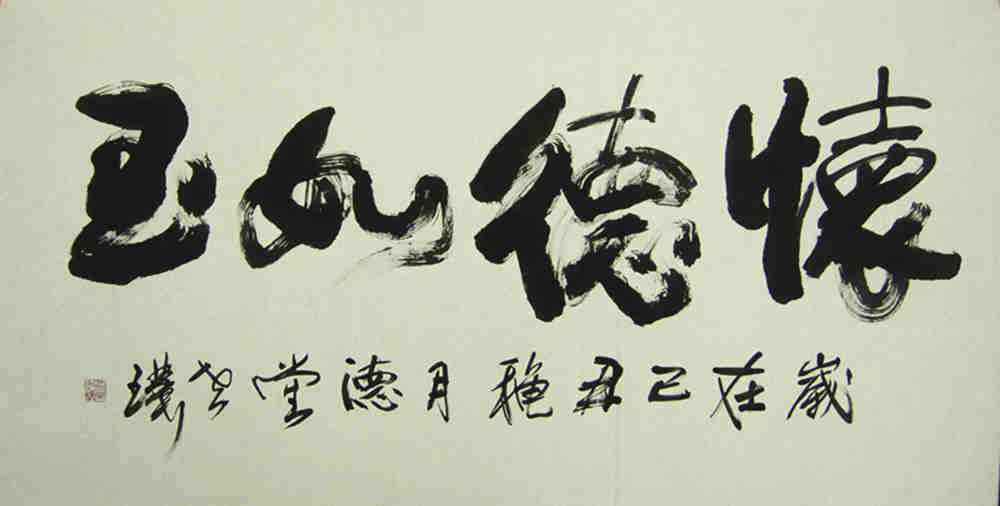 懷德如玉
歲在己丑穐月德堂老璞